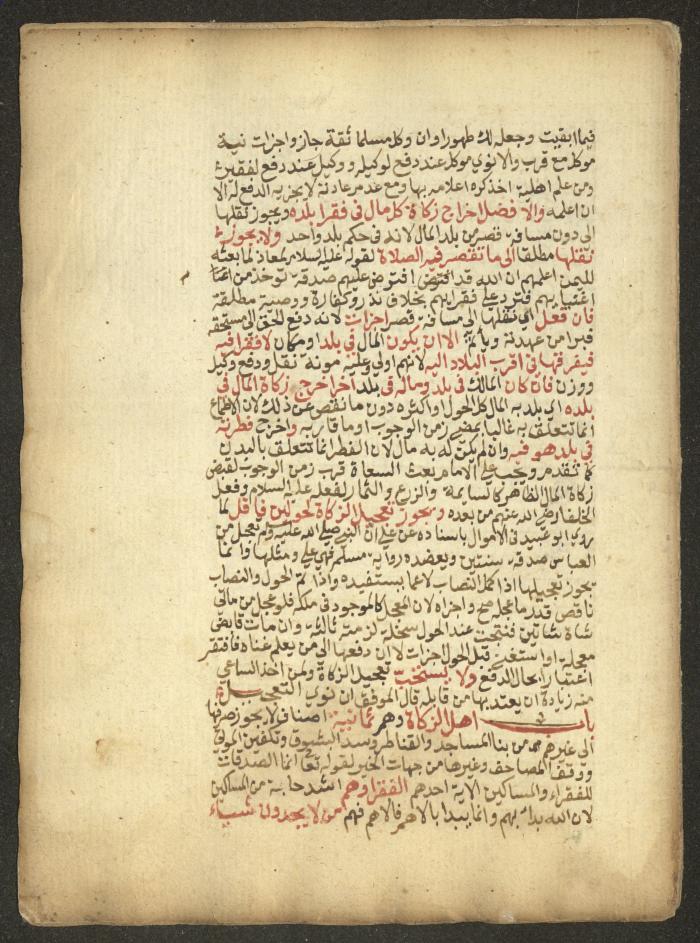 فيما ابقيت وجعله لك طهورا وان وكل مسلما ثقة جاز واجزات نية
موكل مع قرب والا نوى موكل عند دفع لوكيله ووكيل عند دفع لفقير
ومن علم اهلية اخذ كره اعلامه بها ومع عدم عادته لا يجزيه الدفع له الا
ان اعلمه والافضل اخراج زكاة كل مال في فقرا بلده ويجوز نقلها
الى دون مسافة قصر من بلد المال لانه في حكم بلد واحد ولا يجوز
نقلها مطلقا الى ما تقصر فيه الصلاة لقوله عليه السلام لمعاذ لما بعثه
لليمن اعلمهم ان الله قد افترض عليهم صدقة توخذ من
اغنيايهم فترد على فقرايهم بخلاف نذر وكفارة ووصية مطلقة
فان فعل اي نقلها الى مسافة قصر اجزات لانه دفع الحق الى مستحقه
فبرا من عهدته وياثم الا ان يكون المال في بلد او مكان لا فقرا فيه
فيفرقها في اقرب البلاد اليه لانهم اولى وعليه مونة نقل ودفع وكيل
ووزن فان كان المالك في بلد وماله في بلد اخر اخرج زكاة المال في
بلده اي بلد به المال كل الحول او اكثره دون ما نقص عن ذلك لان الاطماع
انما تتعلق به غالبا بمضي زمن الوجوب او ما قاربه واخرج فطرته
في بلد هو فيه وان لم يكن له به مال لان الفطر انما تتعلق بالبدن
كما تقدم ويجب على الامام بعث السعاة قرب زمن الوجوب لقبض
زكاة المال الظاهر كالسايمة والزرع والثمار لفعله عليه السلام وفعل
الخلفا رضي الله عنهم من بعده ويجوز تعجيل الزكاة لحولين فاقل لما
روى ابو عبيد في الاموال باسناده عن علي ان النبي صلى الله عليه وسلم تعجل من
العباس صدقة سنتين ويعضده رواية مسلم فهي علي ومثلها وانما
يجوز تعجيلها اذا كمل النصاب لا عما يستفيده واذا تم الحول والنصاب
ناقص قدر ما عجله صح واجزاه لان المعجل كالموجود في ملكه فلو عجل من مايتي
شاة شاتين فنتجت عند الحول سخلة لزمته ثالثة وان مات قابض
معجلة او استغنى قبل الحول اجزات لا ان دفعها الى من يعلم غناه فافتقر
اعتبارا بحال الدفع ولا يستحب تعجيل الزكاة ولمن اخذ الساعي
منه زيادة ان يعتد بها من قابله قال الموفق ان نوى التعجيل
باب اهل الزكاة وهم ثمانية اصناف لا يجوز صرفها
الى غيرهم من بنا المساجد والقناطر وسد البثوق وتكفين الموتى
ووقف المصاحف وغيرها من جهات الخير لقوله تعالى انما الصدقات
للفقراء والمساكين الاية احدهم الفقرا وهم اشد حاجة من المساكين
لان الله بدا بهم وانما يبدا بالاهم فالاهم فهم من لا يجدون شياء